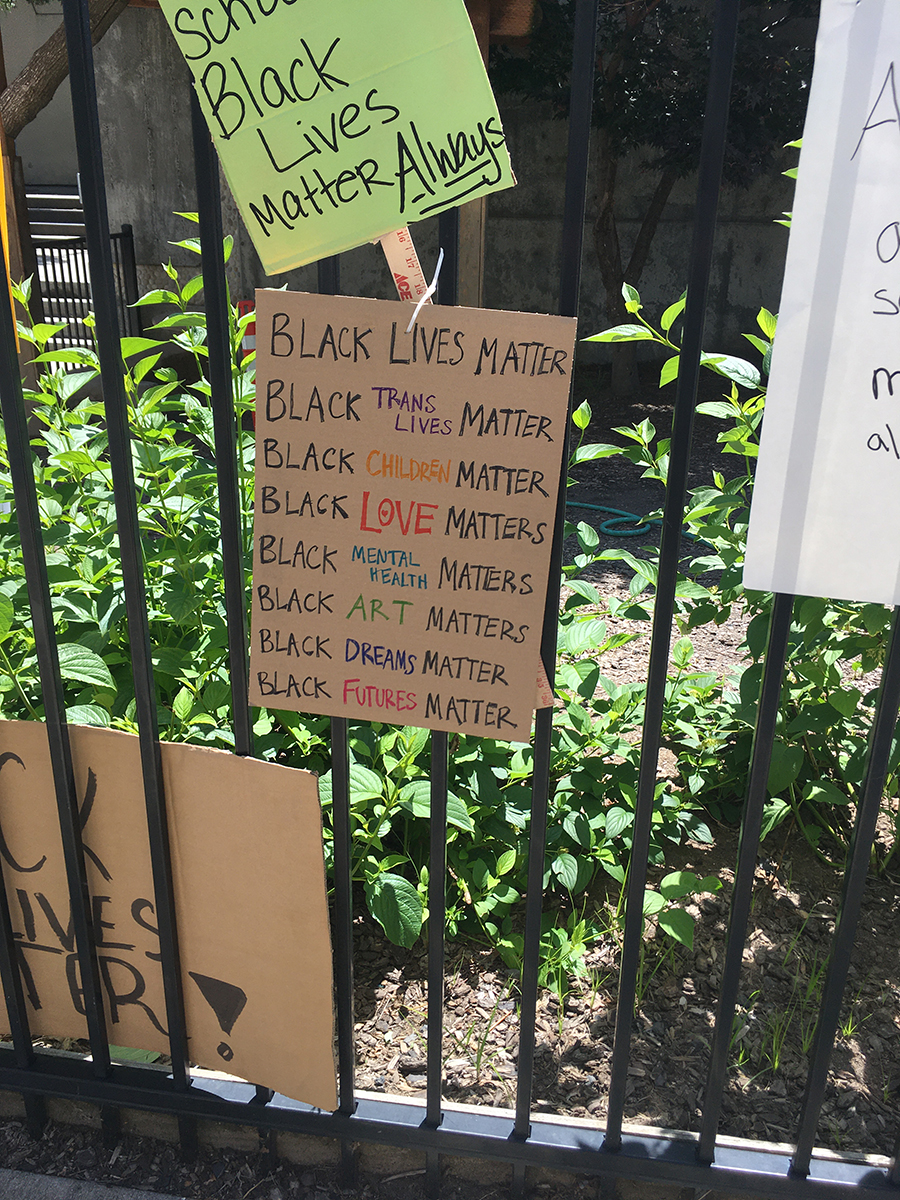 Black
Lives
Matter Always
16
17
ACE
18
BLACK LIVES MATTER
BLACK TRANS LIVES MATTER
BLACK CHILDREN MATTER
BLACK LOVE MATTERS
BLACK MENTAL HEALTH MATTERS
BLACK ART MATTERS
BLACK DREAMS MATTER
BLACK FUTURES MATTER
CK
LIVES
TER!
A
a
s
m
al